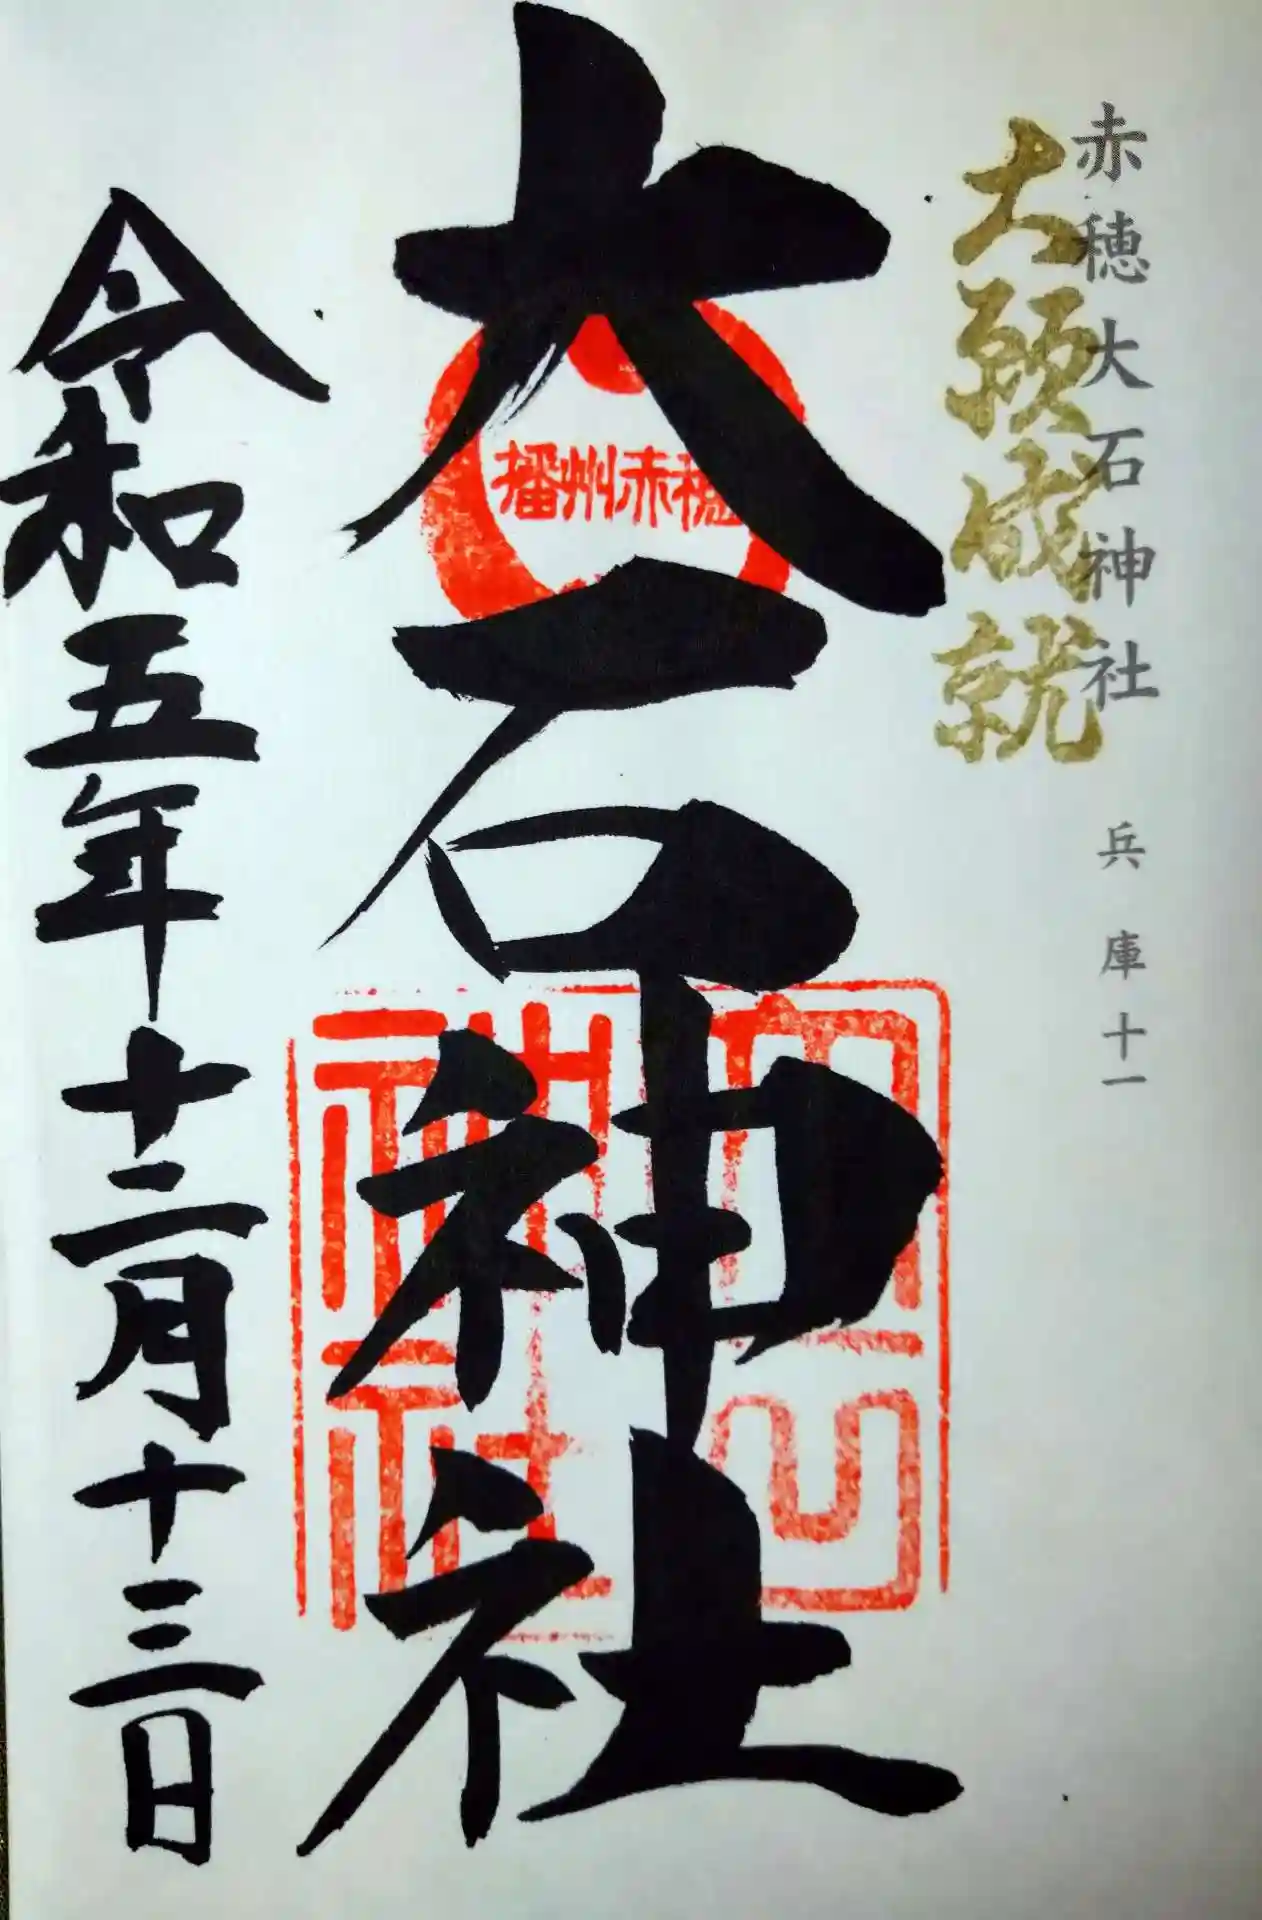 赤穂大石神社 兵庫十一
大願成就
大石神社
播州赤穂
大石神社
令和五年十二月十三日